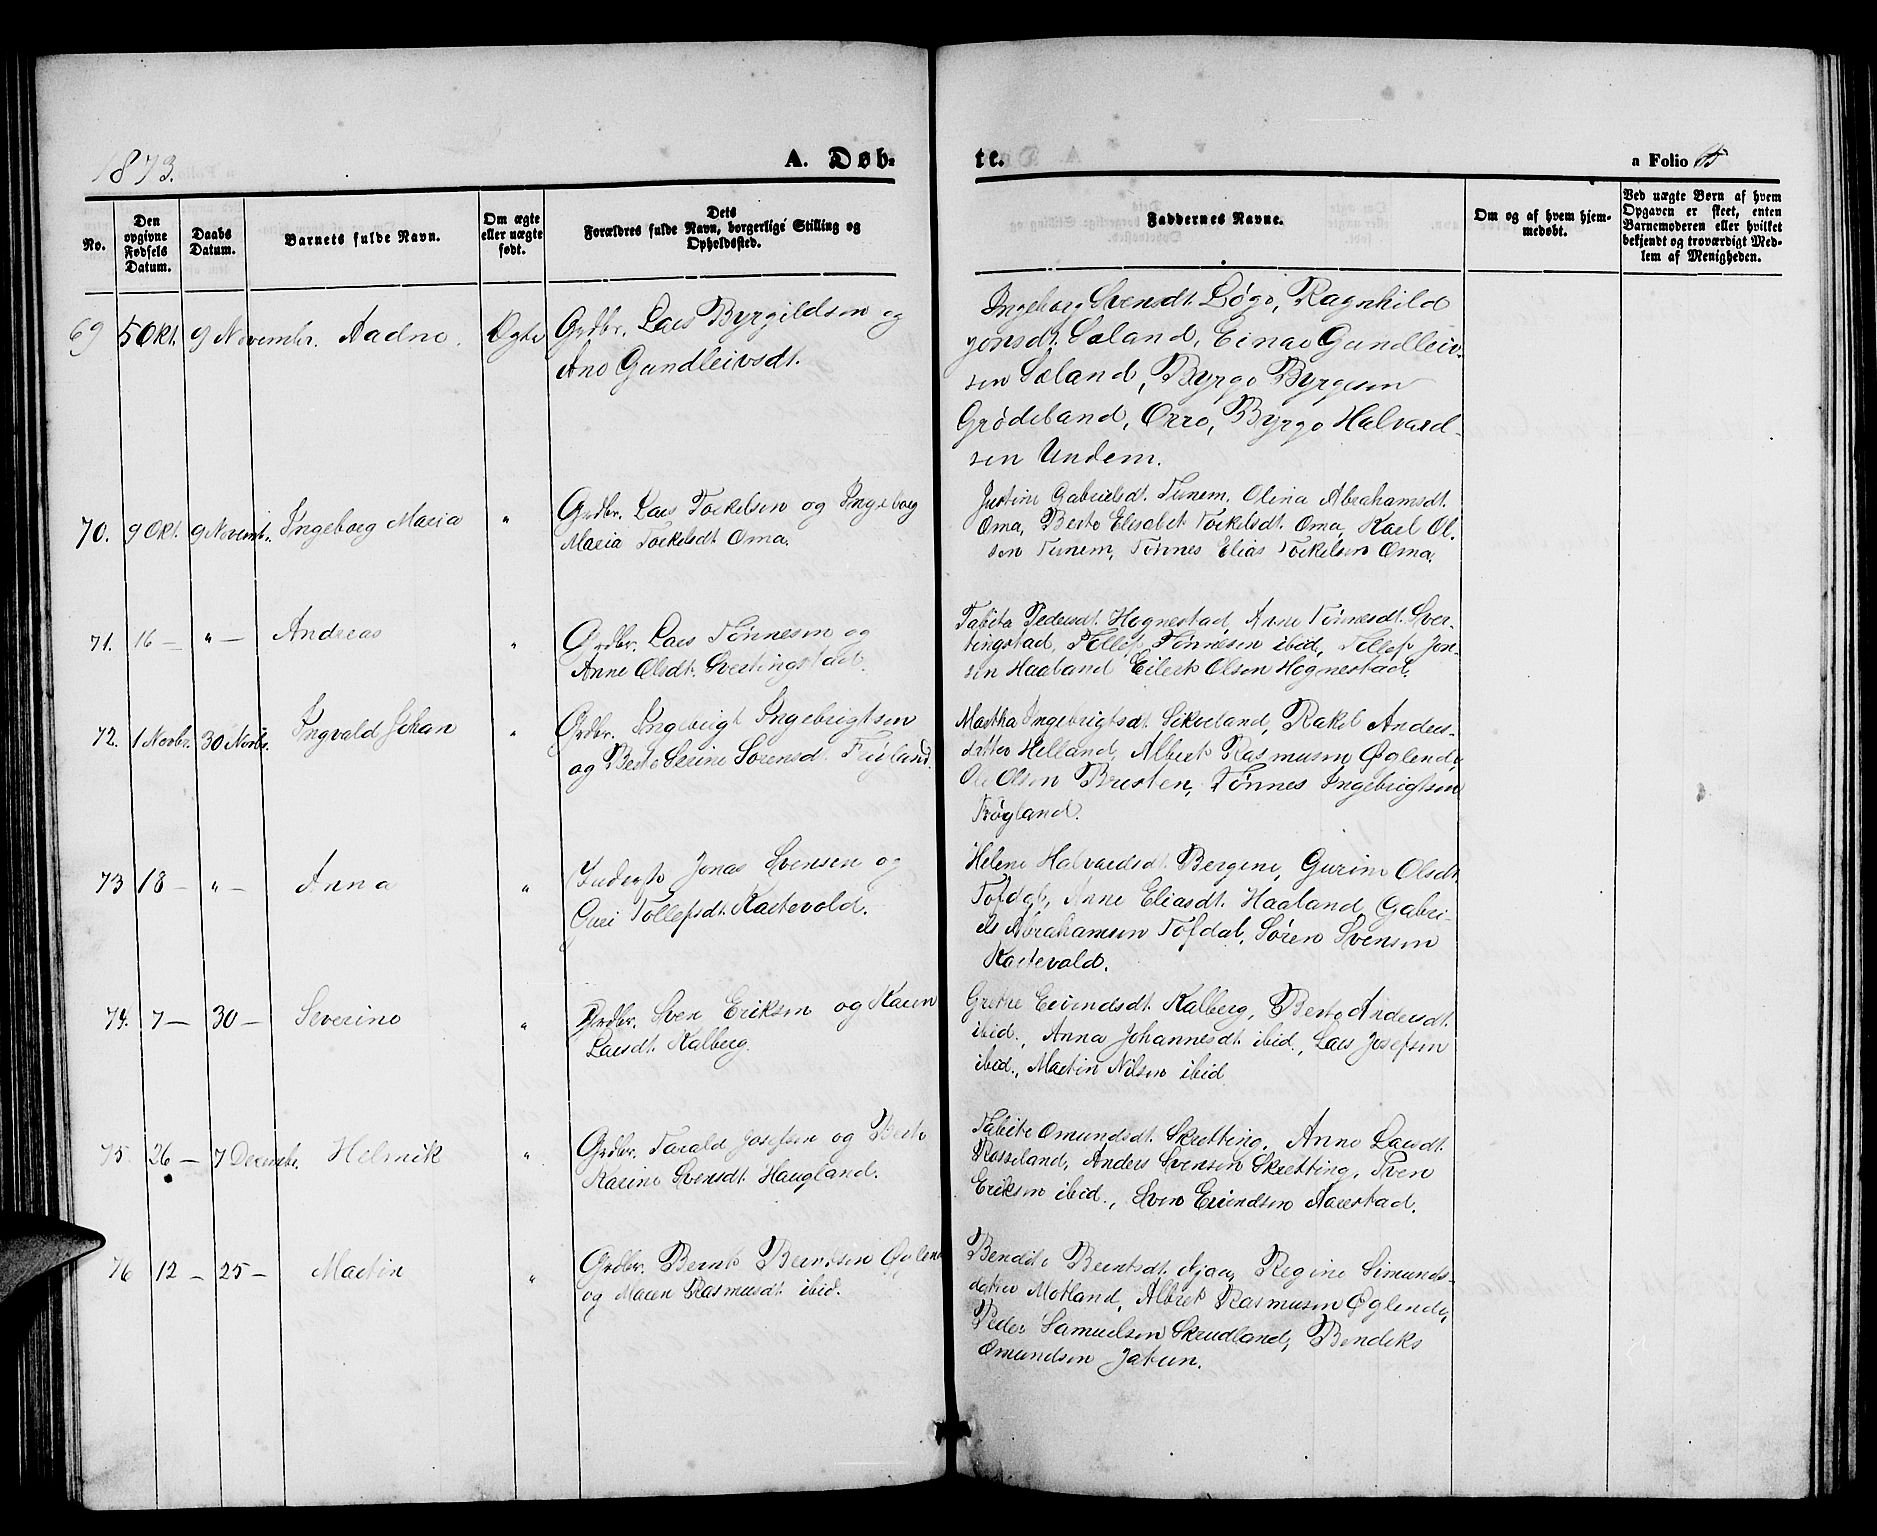 1873.
A. Døb-
te.
a Folio 65
No.
Den opgivne Fødsels Datum.
Daabs Datum.
Barnets fulde Navn.
Om ægte eller uægte født.
Dets Forældres fulde Navn, borgerlige Stilling og Opholdssted.
Faddernes Navne.
Om og af hvem hjemmedøbt.
Ved uægte Børn af hvem Opgaven er skeet, enten Barnemoderen eller hvilket bekjendt og troværdigt Medlem af Menigheden.
69 5 Okt. 9 November. Aadne. Ægte Grdbr. Lars Byrgildsen og
Ane Gundleivsdt.
Ingeborg Svensdt. Løge, Ragnhild
Jonsdt. Sæland, Einar Gundleiv-
sen Sæland, Byrge Byrgesen
Grødeland, Orre, Byrge Halvard-
sen Undem.
70. 9 Okt. 9 Novemb. Ingeborg Maria " Grdbr. Lars Torkelsen og Ingeborg
Maria Torkelsdt. Oma.
Justine Gabrielsdt. Tunem, Olina Abrahamsdt.
Oma, Berte Elisabet Torkelsdt. Oma, Karl Ol-
sen Tunem, Tønnes Elias Torkelsen Oma.
71. 16 — " — Andreas " Grdbr. Lars Tønnesen og
Anne Olsdt. Svertingstad.
Tabita Pedersdt. Hognestad, Anne Tønnesdt. Sver-
tingstad, Tollef Tønnesen ibid, Tollef Jon-
sen Haaland Eilert Olsen Hognestad.
72. 1 Novbr. 30 Novbr. Ingvald Johan " Grdbr. Ingebrigt Ingebrigtsen
og Berte Serine Sørensd. Frøyland.
Martha Ingebrigtsdt. Sikveland, Rakel Anders-
datter Helland, Albert Rasmusen Øglend,
Ole Olsen Brusten, Tønnes Ingebrigtsen
Frøgland.
73 18 — " — Anna " Inderst Jonas Svensen og
Guri Tollefsdt. Kartevold.
Helene Halvardsdt. Bergene, Gurine Olsdt.
Tofdal, Anne Eliasdt. Haaland, Gabri-
els Abrahamsen Tofdal, Søren Svensen
Kartevold.
74. 7 — 30 — Severine " Grdbr. Sven Eriksen og Karen
Larsdt. Kalberg.
Grethe Eivindsdt. Kalberg, Berte Andersdt.
ibid., Anna Johannesdt. ibid., Lars Josefsen
ibid., Martin Nilsen ibid
75. 26 — 7 Decembr. Helmik " Grdbr. Tarald Josefsen og Berte
Karine Svensdt. Haugland.
Tabite Omundsdt. Skretting, Anne Larsdt.
Rosseland, Anders Svensen Skretting, Sven
Eriksen ibid., Sven Eivindsen Aarestad.
76 12 — 25 — Martin " Grdbr. Bernt Berntsen Øglend
og Maren Rasmusdt. ibid.
Bendite Berntsdt. Njaa, Regine Simunds-
datter Motland, Albret Rasmusen Øglend,
Peder Samuelsen Skrudland, Bendiks
Omundsen Jatun.